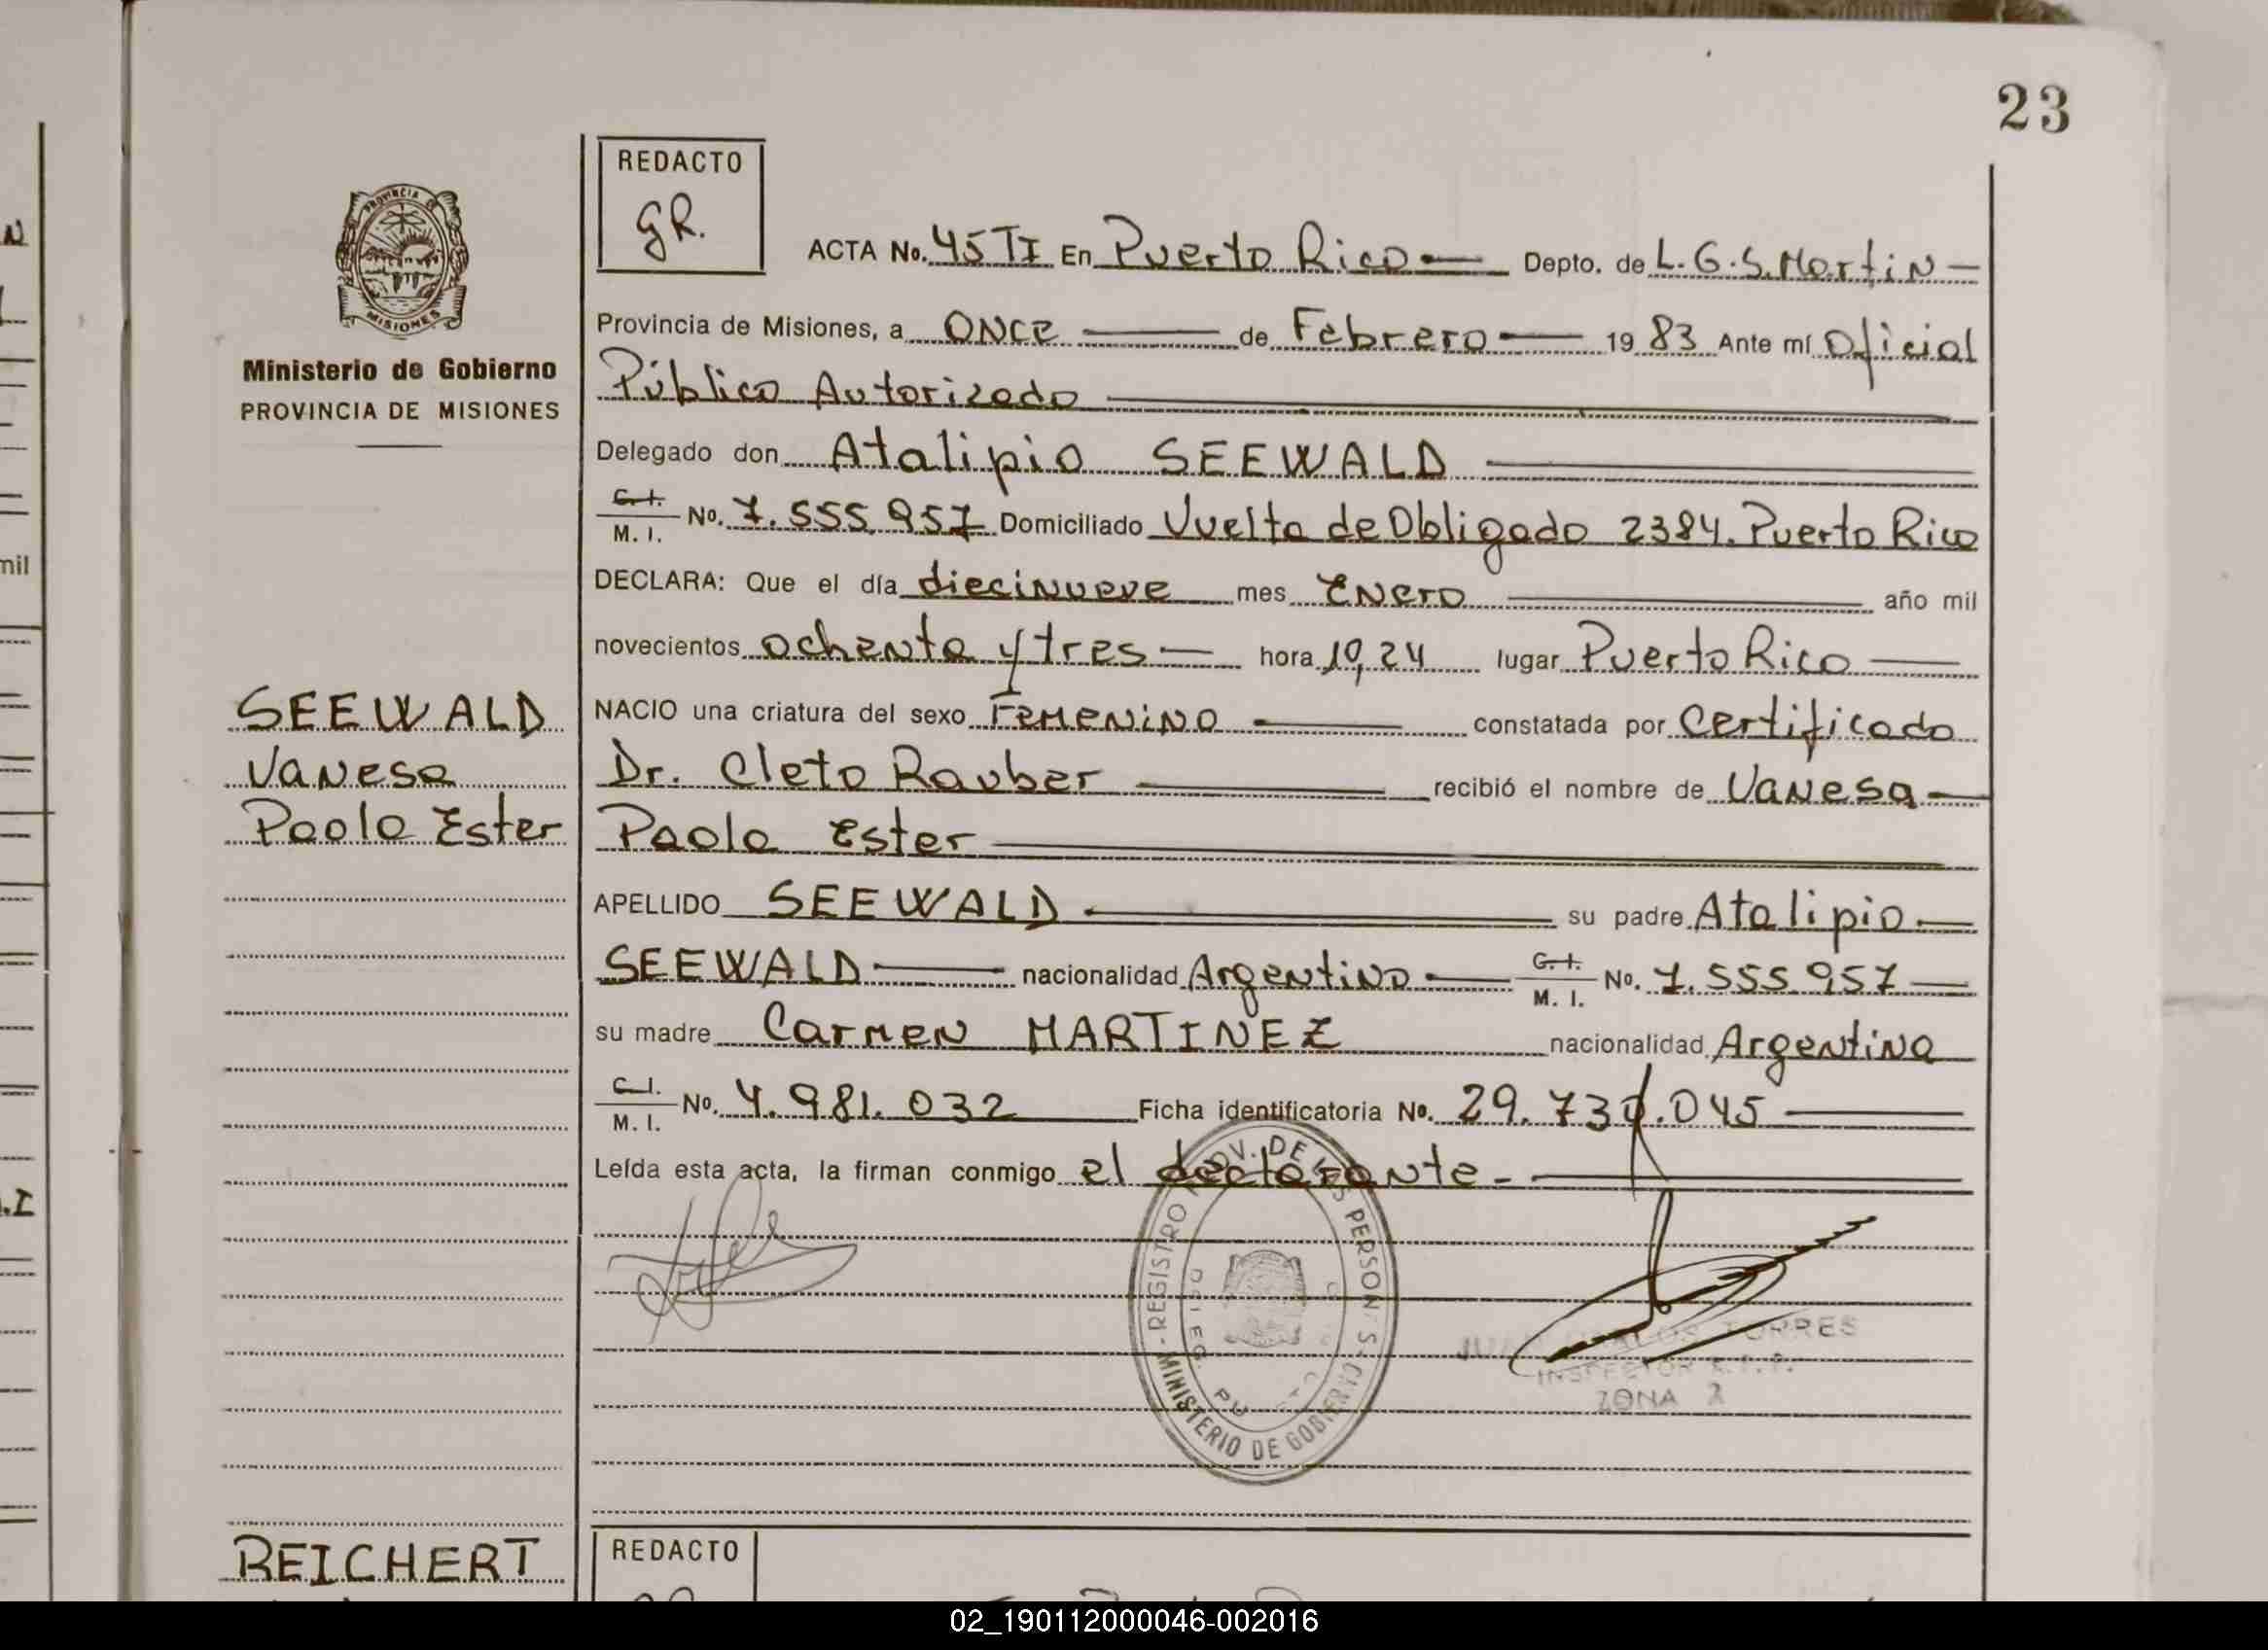 23
REDACTO
GR.
ACTA No. 45 TI En Puerto Rico Depto. de L.G.S.Martin
Provincia de Misiones, a once de Febrero 1983 Ante mí Oficial
Público Autorizado
Delegado don Atalipio SEEWALD
C. I. M. I. No. 7.555.957 Domiciliado Vuelta de Obligado 2384. Puerto Rico
DECLARA: Que el día diecinueve mes Enero año mil
novecientos ochenta y tres hora 19,24 lugar Puerto Rico
NACIO una criatura del sexo Femenino constatada por Certificado
Dr. Cleto Rauber recibió el nombre de Vanesa
Paola Ester
APELLIDO SEEWALD su padre Atalipio
SEEWALD nacionalidad Argentino C. I. M. I. No. 7.555.957
su madre Carmen MARTINEZ nacionalidad Argentina
C. I. M. I. No. 4.981.032 Ficha identificatoria No. 29.730.045
Leída esta acta, la firman conmigo el declarante.
PROVINCIA DE
MISIONES
Ministerio de Gobierno
PROVINCIA DE MISIONES
SEEWALD
Vanesa
Paola Ester
REGISTRO PROV. DE LAS PERSONAS
MINISTERIO DE GOBIERNO
TORRES
INSPECTOR
ZONA 2
REICHERT
REDACTO
mil
02_190112000046-002016